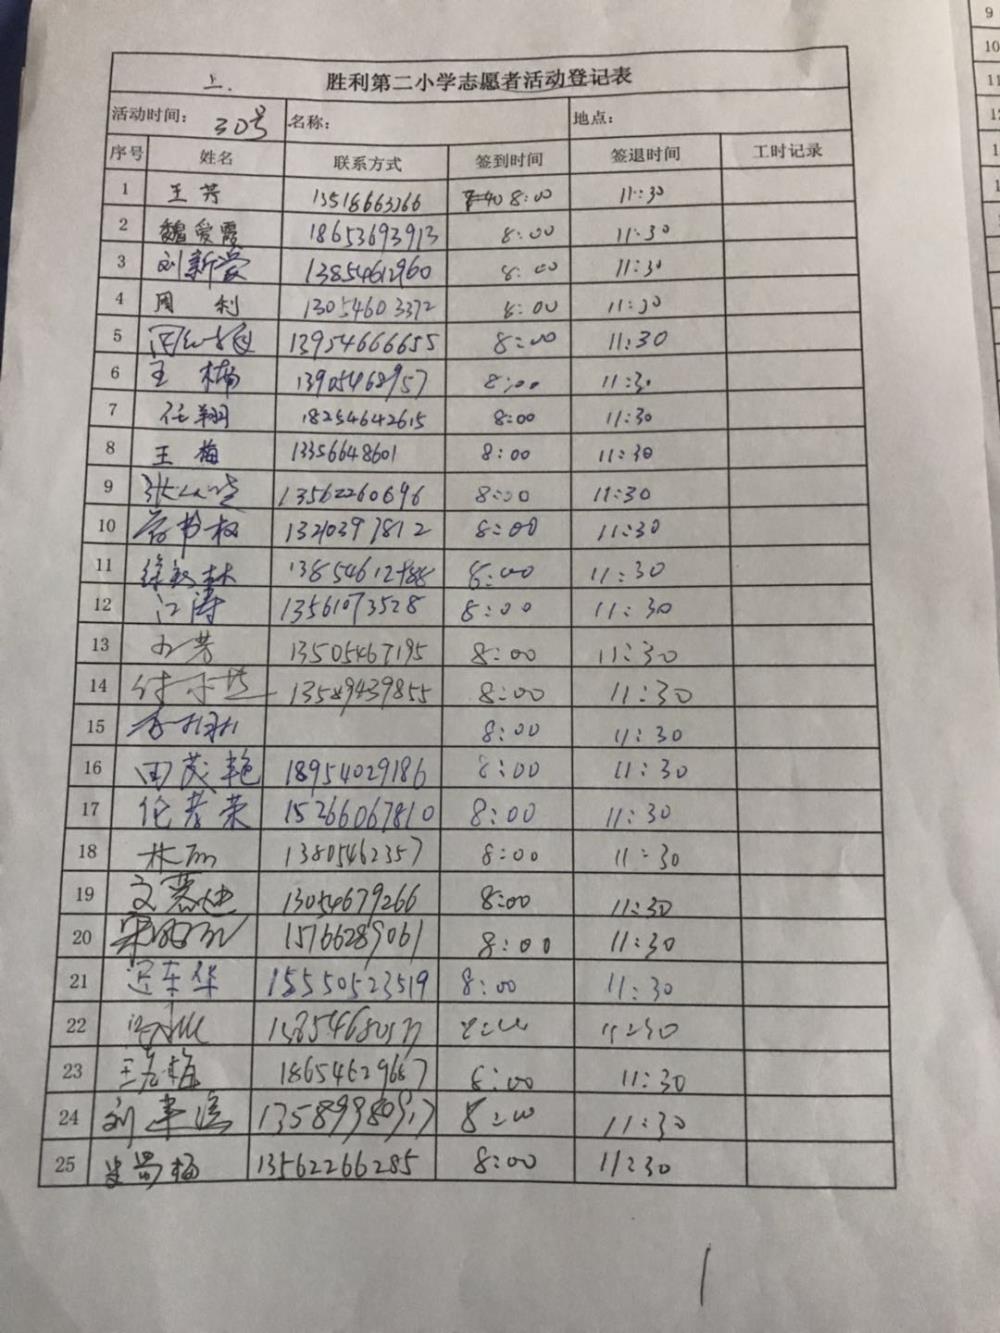 上.
胜利第二小学志愿者活动登记表
活动时间: 30号 名称: 地点:
序号 姓名 联系方式 签到时间 签退时间 工时记录
1 王芳 13518663266 8:00 11:30
2 魏爱霞 18653693913 8:00 11:30
3 刘新蒙 13854612960 8:00 11:30
4 周利 13054603372 8:00 11:30
5 13954666655 8:00 11:30
6 王楠 13905468957 8:00 11:30
7 任翔 18254642615 8:00 11:30
8 王梅 13356648601 8:00 11:30
9 13562260696 8:00 11:30
10 13210397812 8:00 11:30
11 8:00 11:30
12 江涛 13561073528 8:00 11:30
13 13505467195 8:00 11:30
14 13589439855 8:00 11:30
15 8:00 11:30
16 田茂艳 18954029186 8:00 11:30
17 伦孝荣 15266067810 8:00 11:30
18 林丽 13805462357 8:00 11:30
19 文慧迪 13054679266 8:00 11:30
20 15766289061 8:00 11:30
21 迟东华 15550523519 8:00 11:30
22 8:00 11:30
23 18654629667 8:00 11:30
24 刘建滨 13589980917 8:00 11:30
25 13562266285 8:00 11:30
9
10
11
1